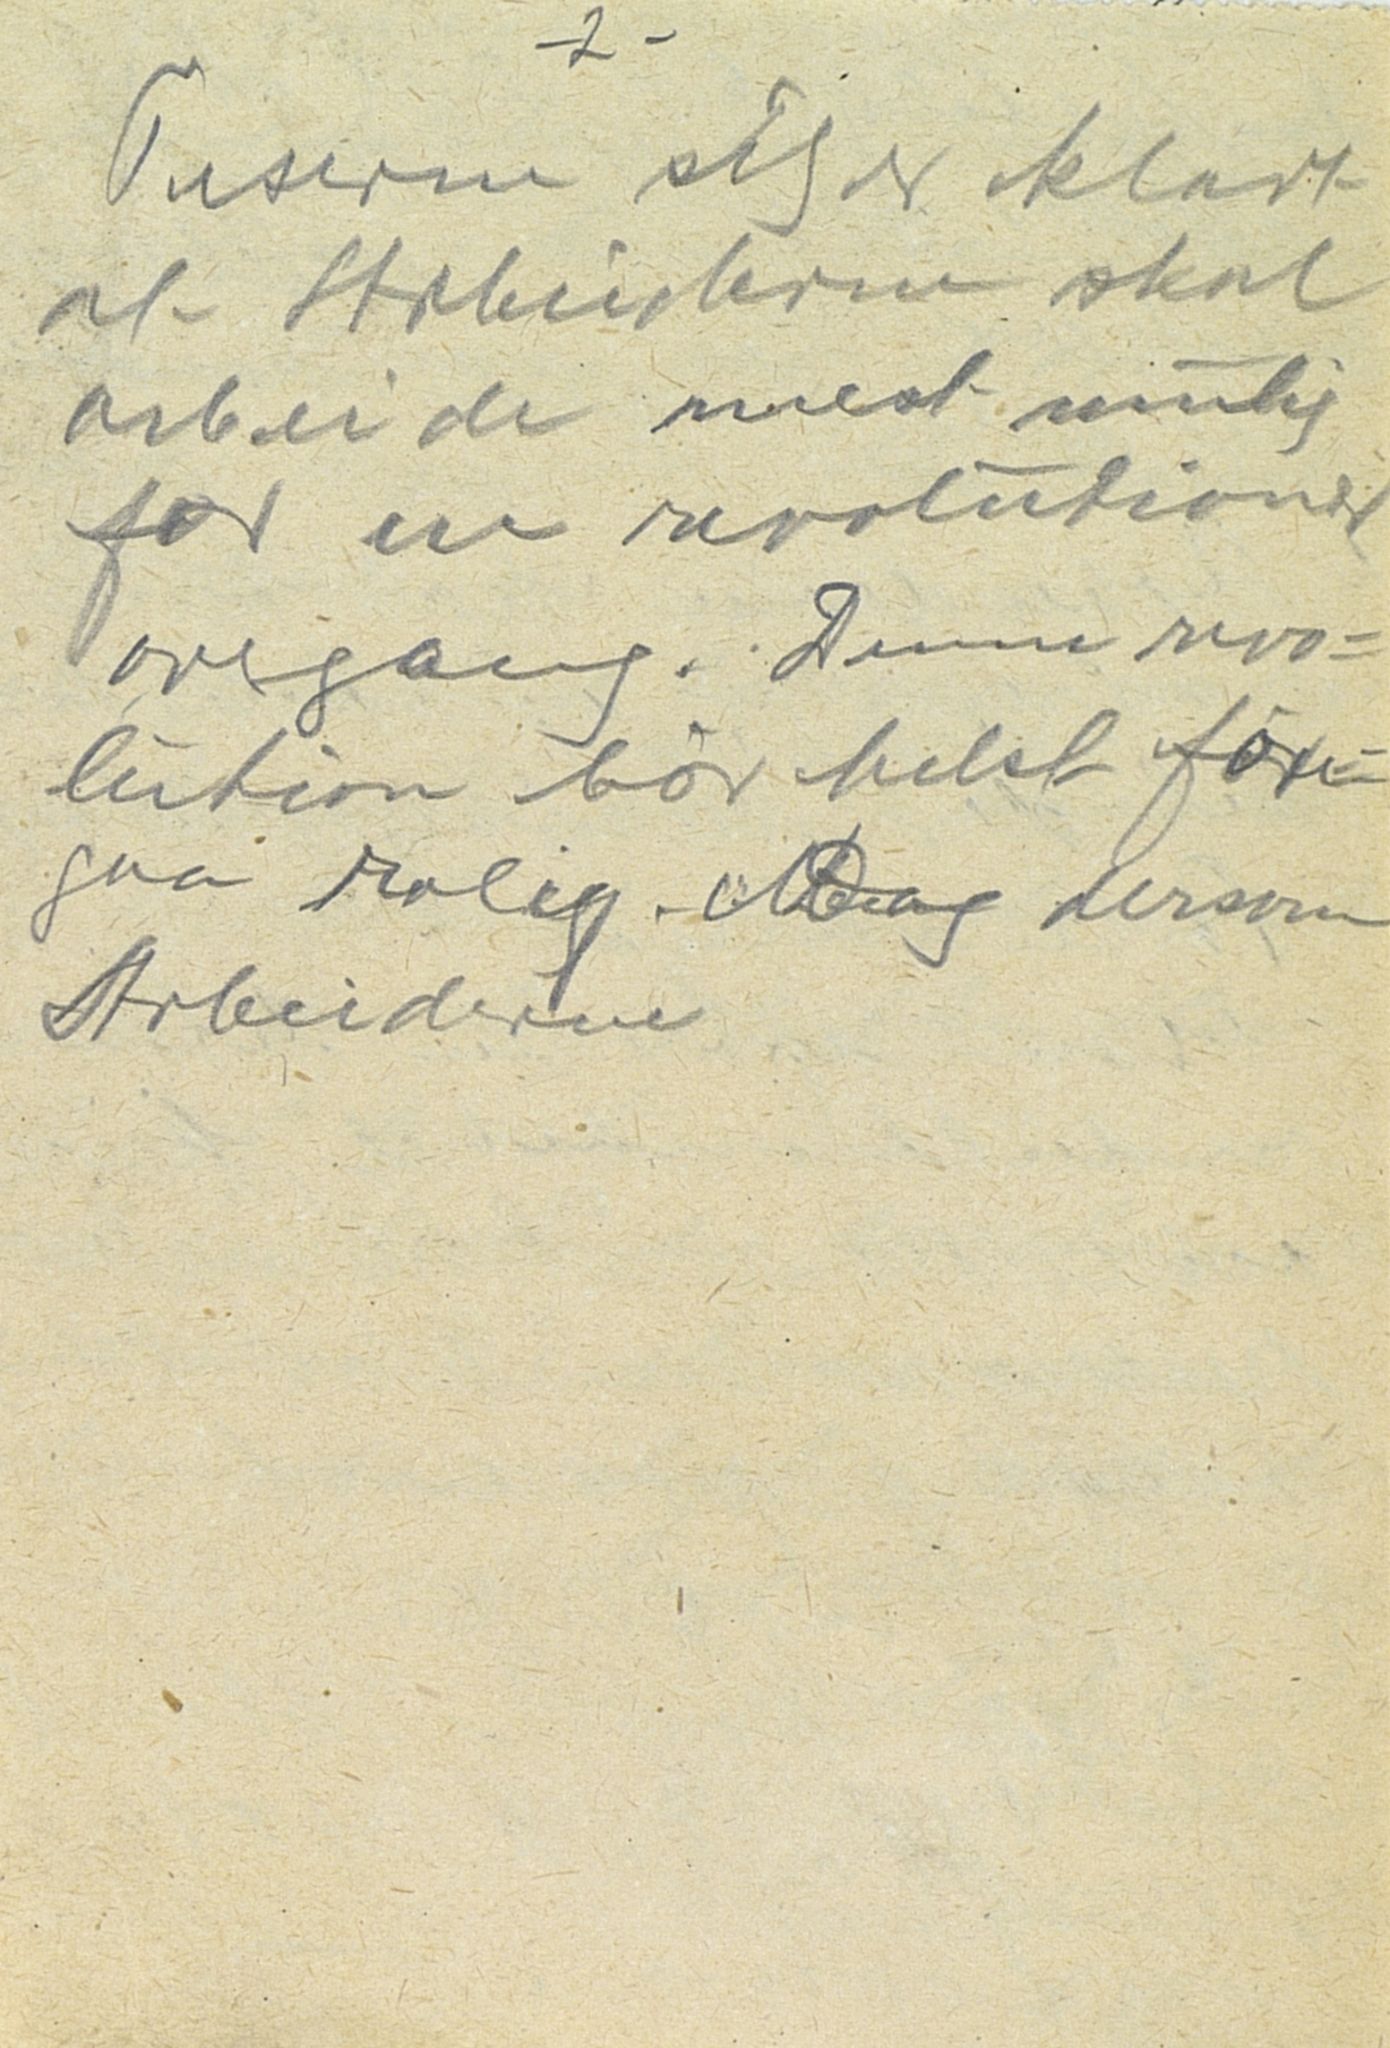 -2-
Teserne siger klart
at Arbeiderne skal
arbeide mest mulig
for en revolutionær
overgang. Denne revo=
lution bör helst fore=
gaa rolig. dersom
Arbeiderne